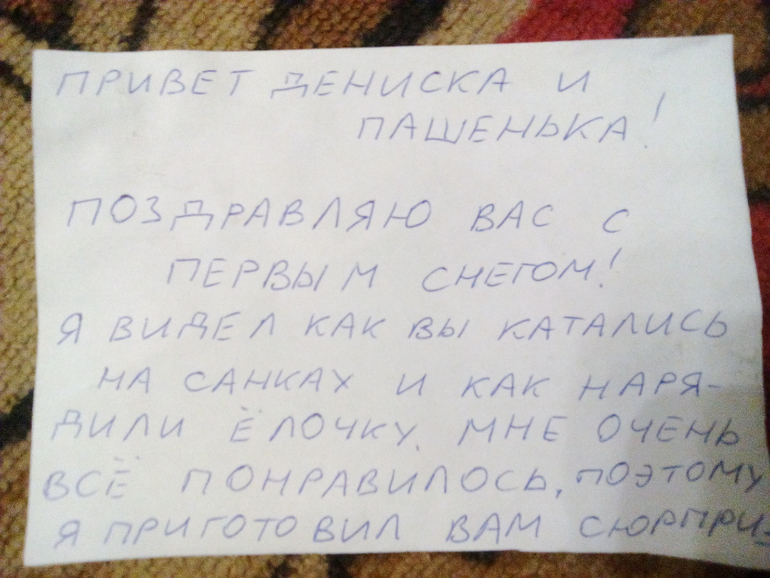 ПРИВЕТ ДЕНИСКА И
ПАШЕНЬКА!
ПОЗДРАВЛЯЮ ВАС С
ПЕРВЫМ СНЕГОМ!
Я ВИДЕЛ КАК ВЫ КАТАЛИСЬ
НА САНКАХ И КАК НАРЯ-
ДИЛИ ЁЛОЧКУ. МНЕ ОЧЕНЬ
ВСЁ ПОНРАВИЛОСЬ, ПОЭТОМУ
Я ПРИГОТОВИЛ ВАМ СЮРПРИЗ